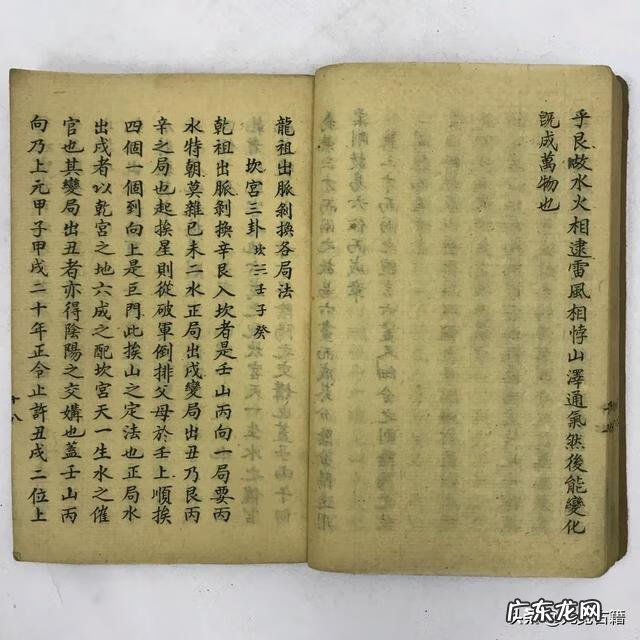 乎艮故水火相逮雷風相悖山澤通氣然後能變化
既成萬物也
龍祖出脈剝換各局法
坎宮三卦坎三壬子癸
乾祖出脈剝換辛艮入坎者是壬山丙向一局要丙
水特朝莫雜巳未二水正局出戌變局出丑乃艮丙
辛之局也起挨星則從破軍倒排父母於壬上順挨
四個一個到向上是巨門此挨山之定法也正局水
出戌者以乾宮之地六成之配坎宮天一生水之催
官也其變局出丑者亦得陰陽之交媾也蓋壬山丙
向乃上元甲子甲戌二十年正令止許丑戌二位上
十八
广东龙网